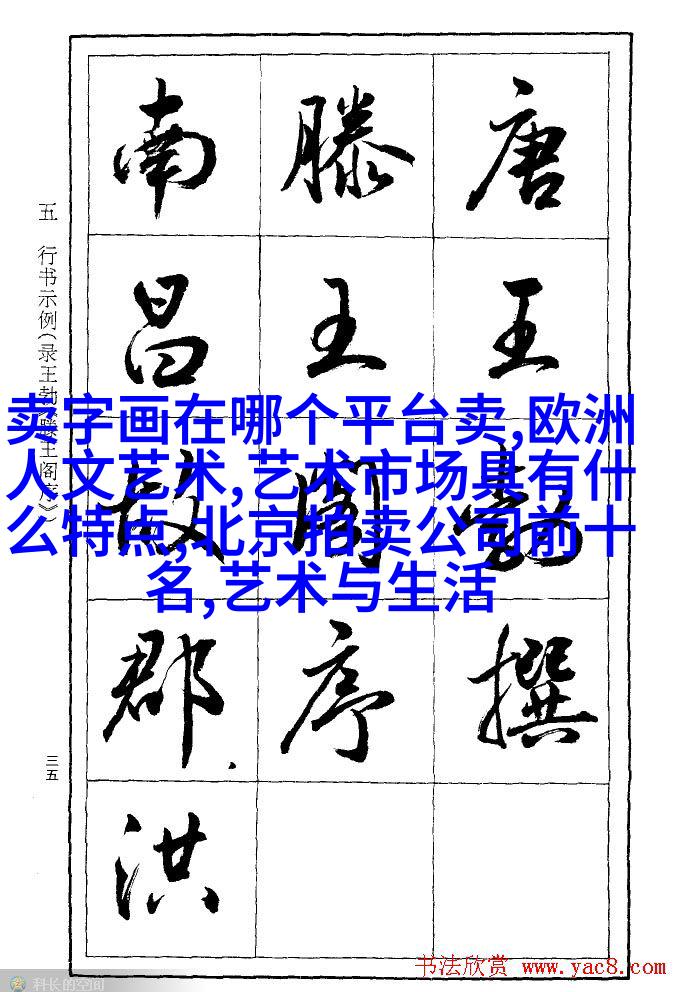 唐王勃撰
滕王阁序
南昌故郡.洪
五 行书示例(录王勃《滕王阁序》)
三五
卖字画在哪个平台卖,欧洲
人文艺术,艺术市场具有什
么特点,北京拍卖公司前十
名,艺术与生活
书法欣赏 www.yac8.com
科长的空间